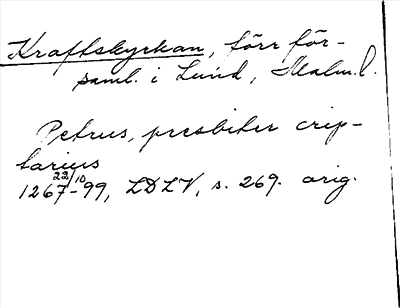 Kraftskyrkan, förr för-
saml. i Lund, Malm. l.
Petrus, presbiter crip-
tarius
1267 22/10 -99, LDLV, s. 269. orig.